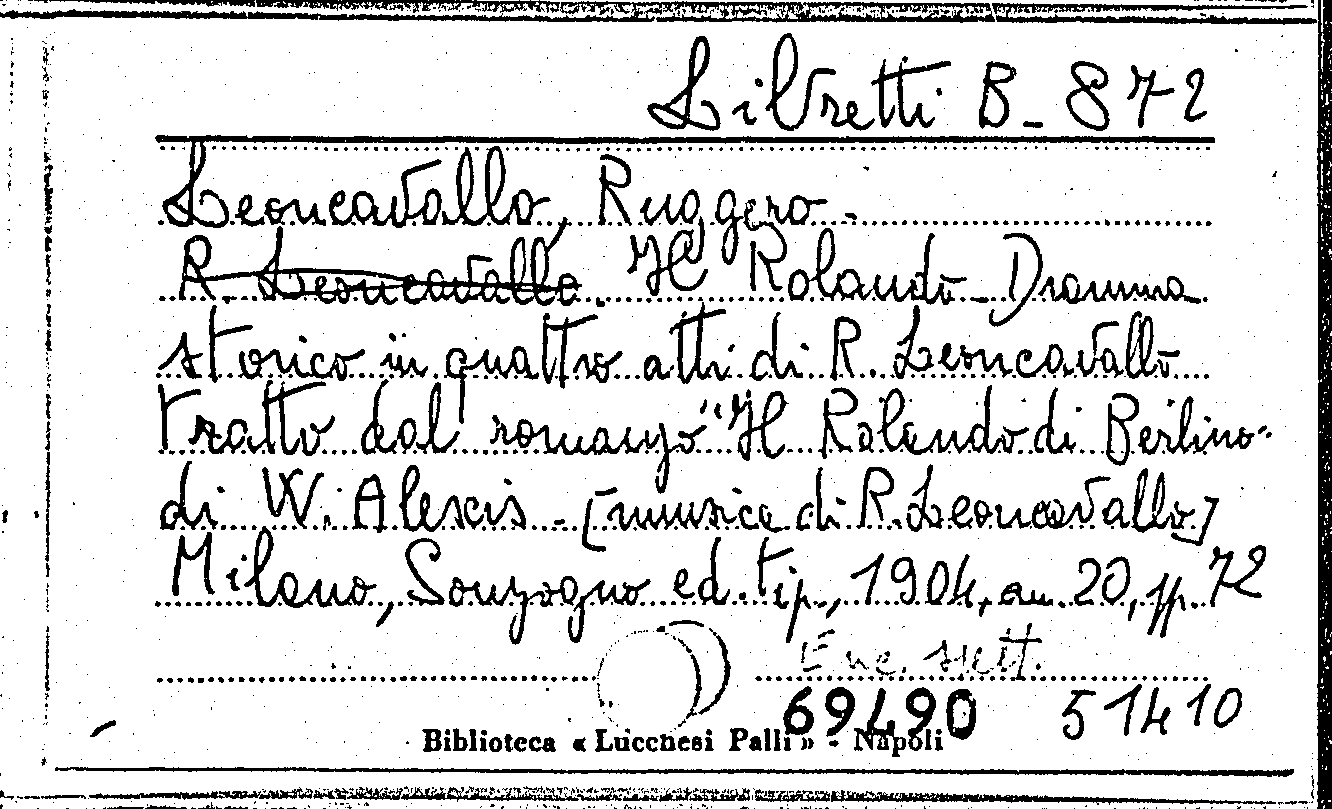 Libretti B-872
Leoncavallo, Ruggero.
R. Leoncavallo. Il Rolando - Dramma
storico in quattro atti di R. Leoncavallo
tratto dal romanzo "Il Rolando di Berlino"
di W. Alexis - [musica di R. Leoncavallo]
Milano, Sonzogno ed. tip., 1904, in 20, pp. 72
69490 51410
Biblioteca « Lucchesi Palli » - Napoli